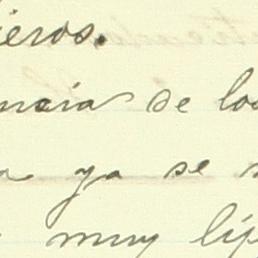 ieros.
ncia de los
a ya se
muy líp